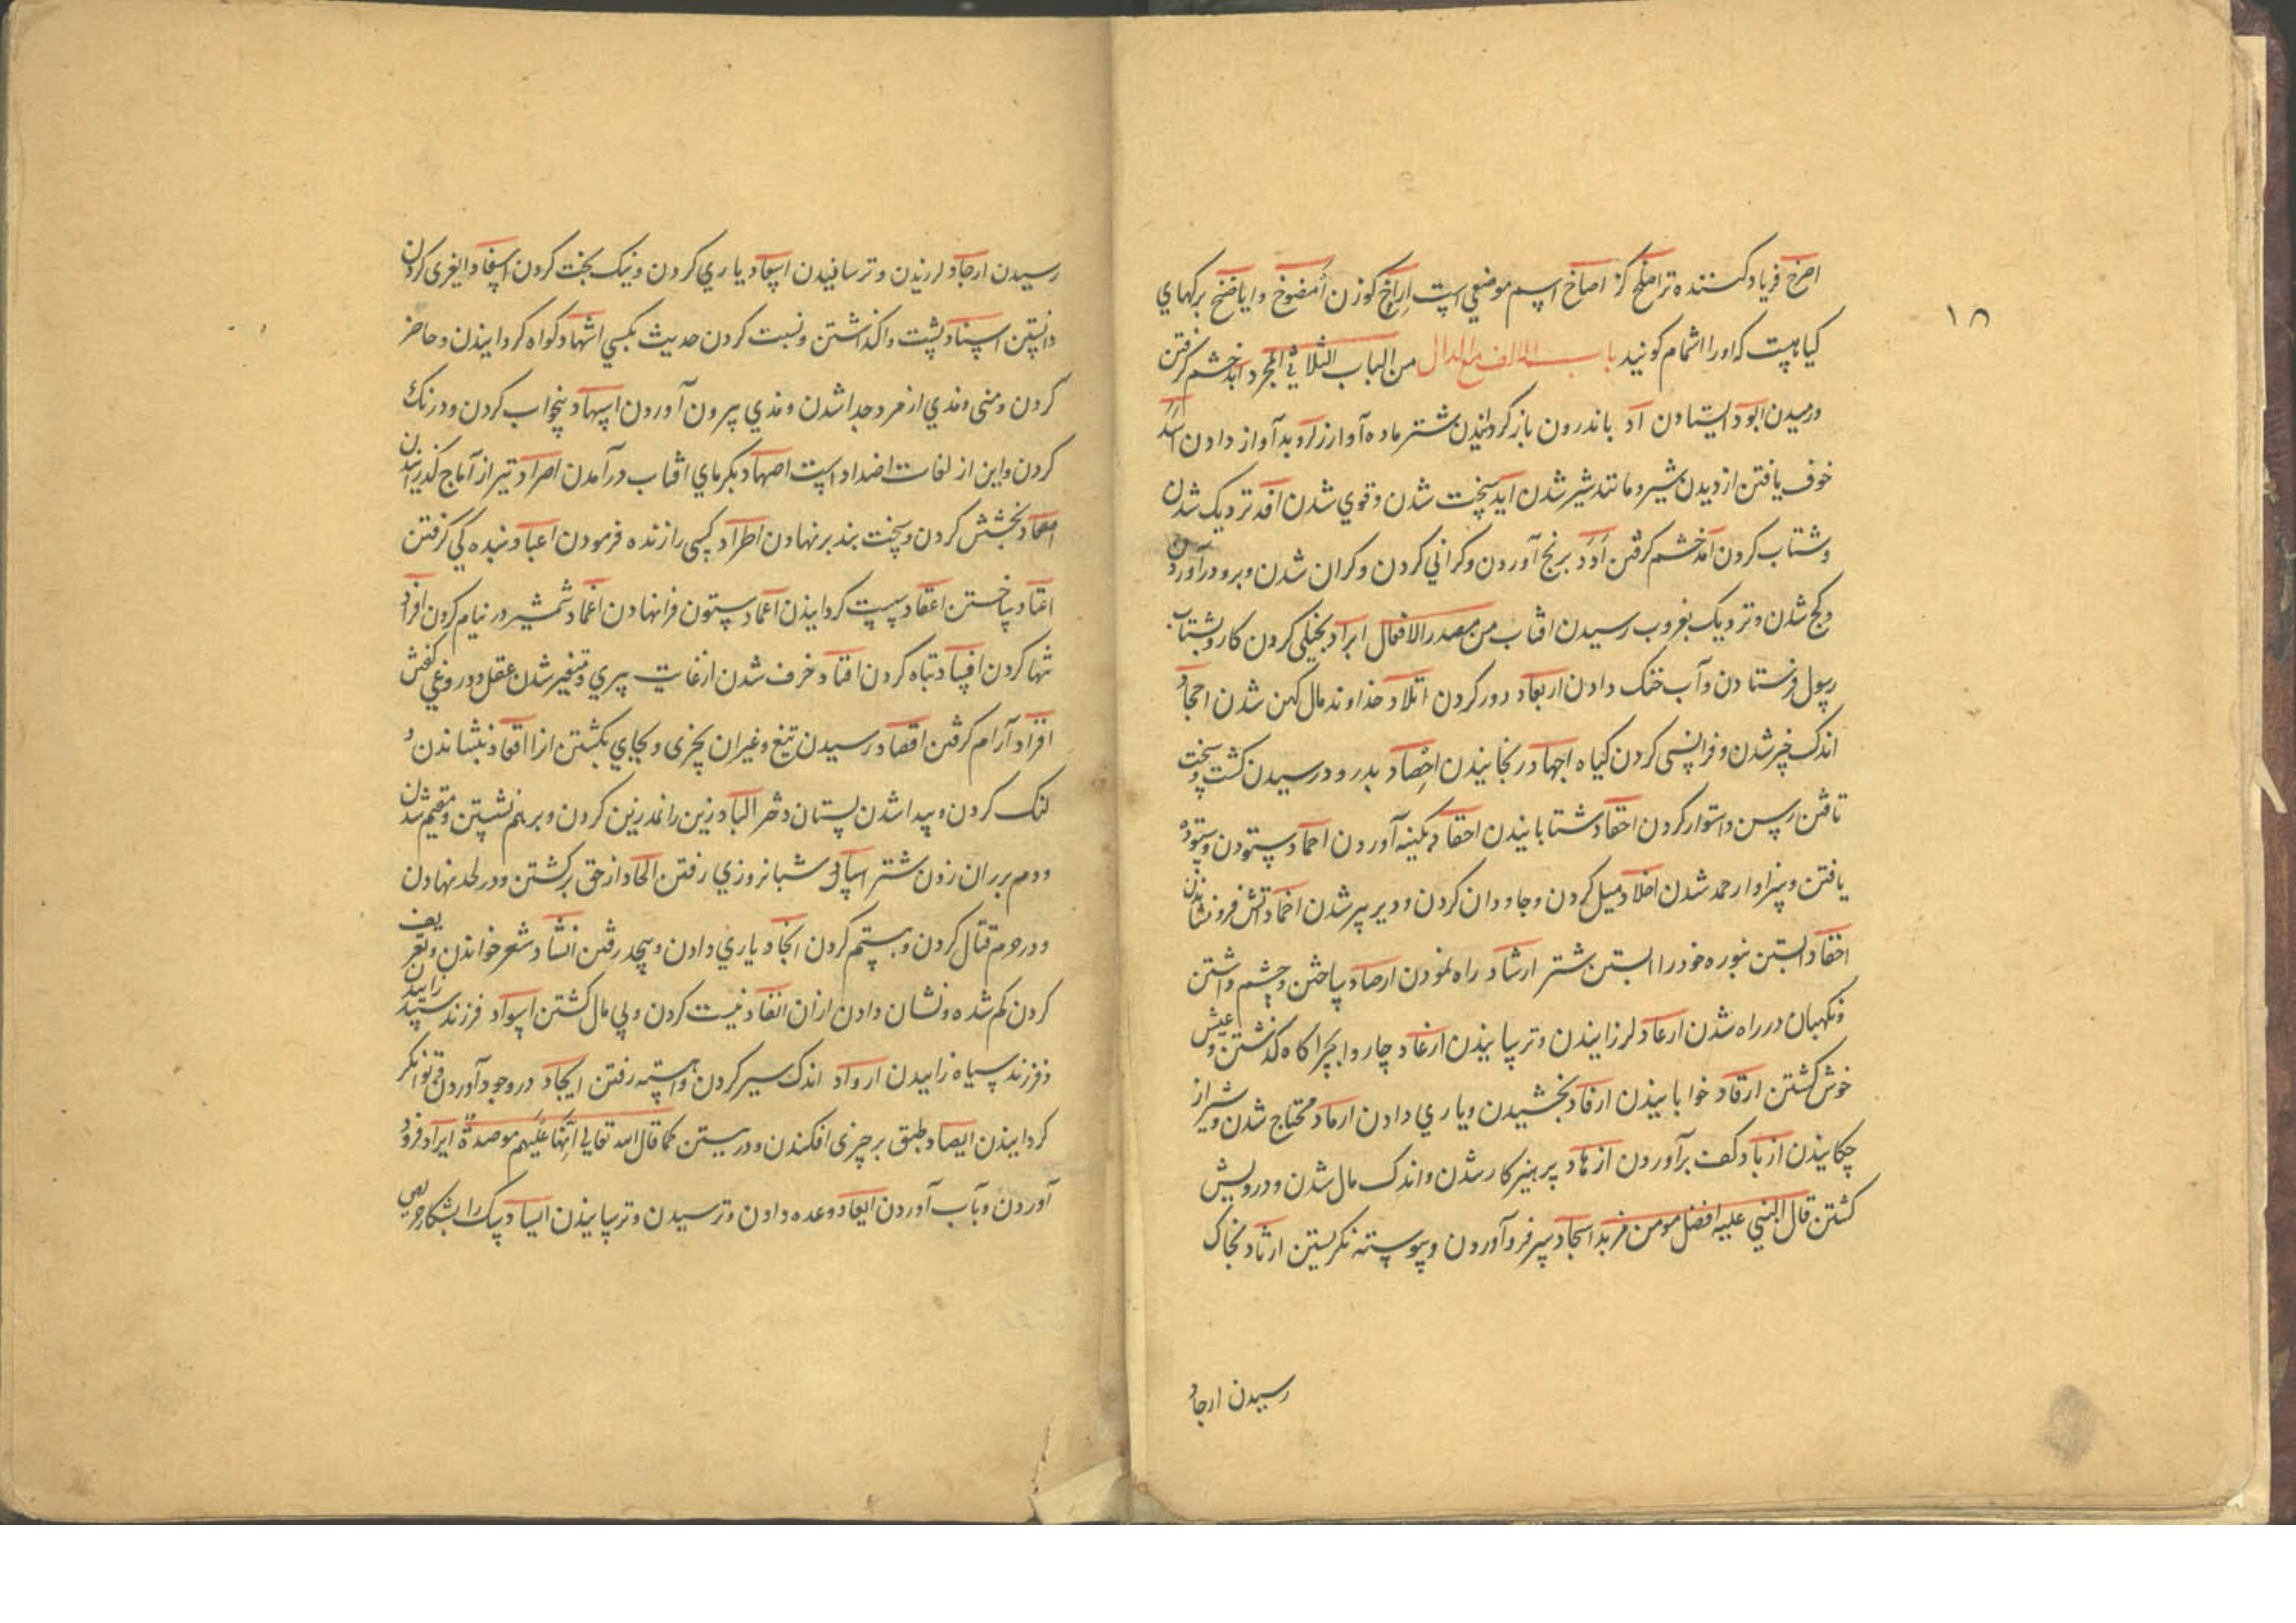 ۱۸
اصرخ فریاد کننده تر اصلخ کر اصاخ اسم موضعی است اراخ کوزن امضوخ وایاضخ برکهای
کیاهیست که اورا اشمام کونید باب الالف مع الدال من الباب الثلاثی المجرد ابد خشم کرفتن
ورمیدن ابود ایستادن اد باندرون باز کردانیدن شتر ماده آواز را و بد آواز دادن اسد
خوف یافتن از دیدن شیر و مانند شیر شدن اید سخت شدن وقوی شدن افد نزدیک شدن
وشتاب کردن امد خشم کرفتن اود برنج آوردن وکرانی کردن وکران شدن وبرو درآوردن
وکج شدن ونزدیک بغروب رسیدن افتاب من مصدر الافعال ابراد بخیلی کردن کار وبشتاب
رسول فرستادن وآب خنک دادن اربعاد دور کردن اتلاد خداوند مال کهن شدن احجاد
اندک خیر شدن وفراپسی کردن کیاه اجهاد رنجانیدن احصاد بدرودرسیدن کشت وسخت
تافتن رسن واستوار کردن احقاد شتابانیدن احقاد بکینه آوردن احماد ستودن وستوده
یافتن وسزاوار حمد شدن اخلاد میل کردن وجاودان کردن ودیر پیر شدن اخماد اتش فرو نشاندن
اخفاد ابستن نبوره خود را ابستن شتر ارشاد راه نمودن ارصاد ساختن وچشم داشتن
ونکهبان در راه شدن ارعاد لرزانیدن وترسانیدن ارغاد چاروا بچراکاه کذشتن وعیش
خوش کشتن ارقاد خوابانیدن ارفاد بخشیدن ویاری دادن ارماد محتاج شدن وشیر از
چکانیدن ازباد کف برآوردن ازهاد پرهیزکار شدن واندک مال شدن ودرویش
کشتن قال النبی علیه افضل مومن مزهد اسجاد سر فرو آوردن وپیوسته نکریستن ارثاد بخاک
رسیدن ارجاد
رسیدن ارجاد لرزیدن وترسانیدن اسعاد یاری کردن ونیک بخت کردن اسفاد ایغری کردن
دانستن اسناد پشت واکذاشتن ونسبت کردن حدیث بکسی اشهاد کواه کردانیدن وحاضر
کردن ومنی ومذی از مرد جدا شدن ومذی بیرون آوردن اسهاد بیخواب کردن ودرنک
کردن واین از لغات اضداد است اصهاد بکرمای افتاب درآمدن اصراد تیر از آماج کذرانیدن
اصفاد بخشش کردن وسخت بند بر نهادن اطراد کسی را زنده فرمودن اعباد بنده کی کرفتن
اعتاد ساختن اعقاد سبب کردانیدن اعماد ستون فرا نهادن اغماد شمشیر در نیام کردن افراد
تنها کردن افساد تباه کردن افناد خرف شدن از غایت پیری ومتغیر شدن عقل ودروغی کفتن
اقراد آرام کرفتن اقصاد رسیدن تیغ وغیر ان بچیزی وبجای بکشتن انرا اقعاد نبشاندن و
لنک کردن وپیدا شدن پستان دختر الباد زین را نمد زین کردن وبرهم نشستن ومقیم شدن
ودم برران زدن شتر اساد شبانروزی رفتن الحاد از حق برکشتن ودر لحد نهادن
ودرحرم قتال کردن وستم کردن انجاد یاری دادن وبنجد رفتن انشاد شعر خواندن وتعریف
کردن کم شده ونشان دادن ازان انفاد نیست کردن وبی مال کشتن اسواد فرزند سپید زاییدن
وفرزند سیاه زاییدن ارواد اندک سیر کردن واهسته رفتن ایجاد در وجود آوردن وتوانکر
کردانیدن ایصاد طبق بر چیزی افکندن ودر بستن کما قال الله تعالی انها علیهم موصدة ایراد فرود
آوردن وبآب آوردن ایعاد وعده دادن وترسیدن وترسانیدن ایساد سک را بشکار حریص